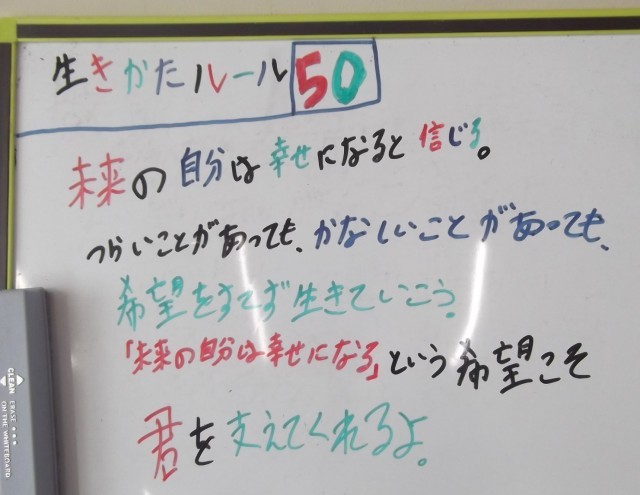 生きかたルール50
未来の自分は幸せになると信じる。
つらいことがあっても、かなしいことがあっても、
希望をすてず生きていこう。
「未来の自分は幸せになる」という希望こそ
君を支えてくれるよ。
CLEAN
ERASE
ON THE WHITEBOARD